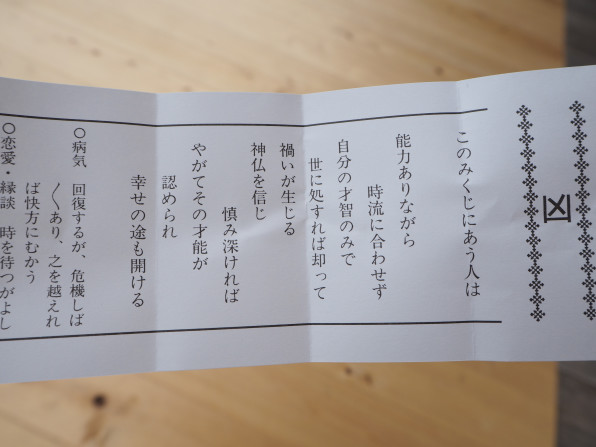 凶
このみくじにあう人は
能力ありながら
時流に合わせず
自分の才智のみで
世に処すれば却って
禍いが生じる
神仏を信じ
慎み深ければ
やがてその才能が
認められ
幸せの途も開ける
〇病気　回復するが、危機しば
〱あり、之を越えれ
ば快方にむかう
〇恋愛・縁談　時を待つがよし